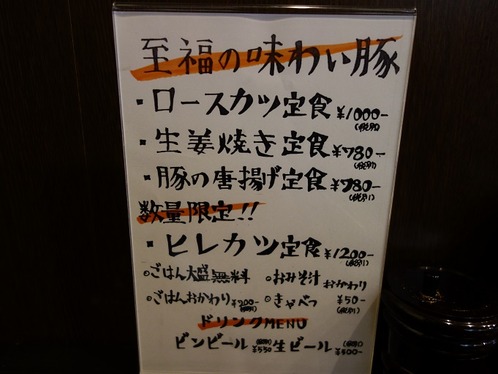 至福の味わい豚
・ロースカツ定食 ¥1000- (税別)
・生姜焼き定食 ¥780- (税別)
・豚の唐揚げ定食 ¥780- (税別)
数量限定!!
・ヒレカツ定食 ¥1200- (税別)
○ごはん大盛無料 ○おみそ汁おかわり
○ごはんおかわり ¥200- ○きゃべつ ¥50- (税別)
ドリンクMENU
ビンビール (税別) ¥550 生ビール (税別) ¥500-